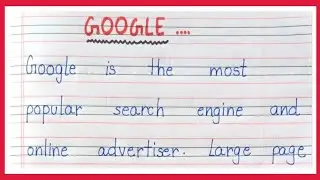 GOOGLE ....
Google is the most
popular search engine and
online advertiser. Large page